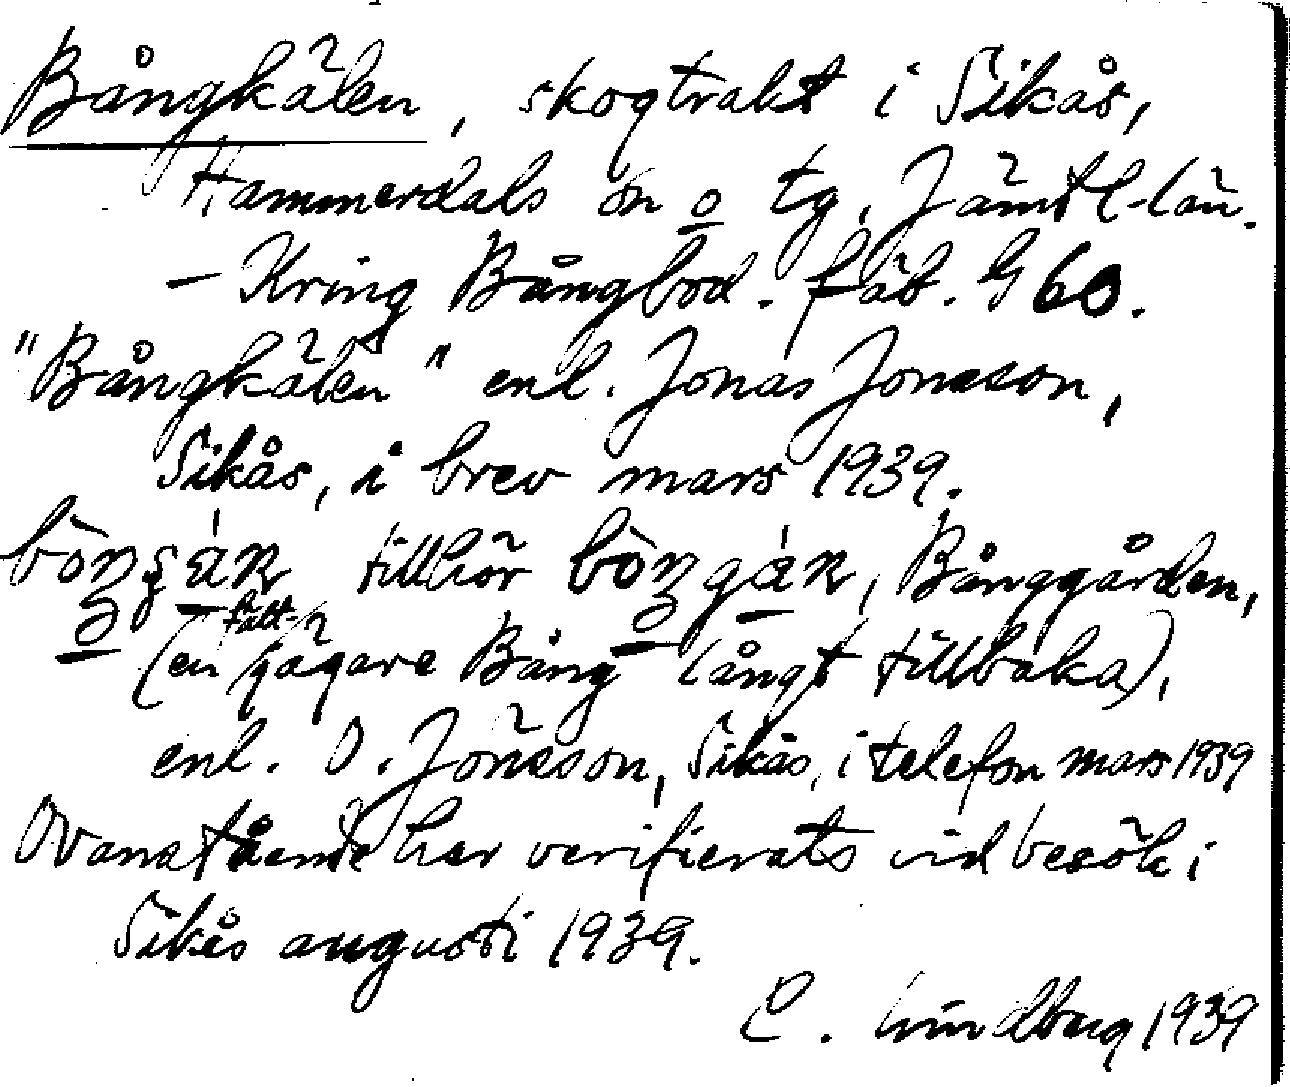 Bångkälen, skogtrakt i Sikås,
Hammerdals sn o tg, Jämtl. län.
- Kring Bångbod. fäb. G 60.
"Bångkälen" enl. Jonas Jonsson,
Sikås, i brev mars 1939.
tillhör Bånggården,
fatt-
(en qågare Bång långt tillbaka),
enl. O. Jönsson, Sikås, i telefon mars 1939
Ovanstående har verifierats vid besök i
Sikås augusti 1939.
E. Lundberg 1939